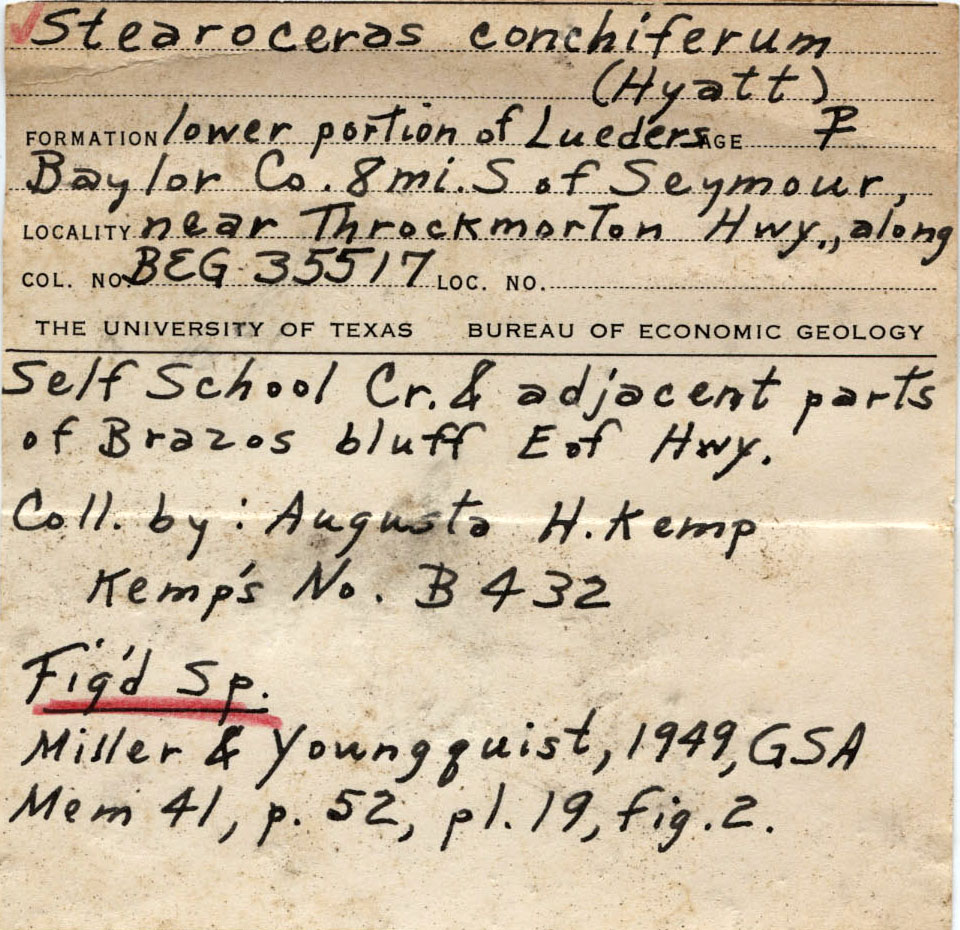 Stearoceras conchiferum
(Hyatt)
FORMATION lower portion of Lueders AGE P
Baylor Co. 8 mi. S of Seymour,
LOCALITY near Throckmorton Hwy., along
COL. NO. BEG 35517 LOC. NO.
THE UNIVERSITY OF TEXAS BUREAU OF ECONOMIC GEOLOGY
Self School Cr. & adjacent parts
of Brazos bluff E of Hwy.
Coll. by: Augusta H. Kemp
Kemp's No. B 432
Fig'd Sp.
Miller & Youngquist, 1949, GSA
Mem 41, p. 52, pl. 19, fig. 2.